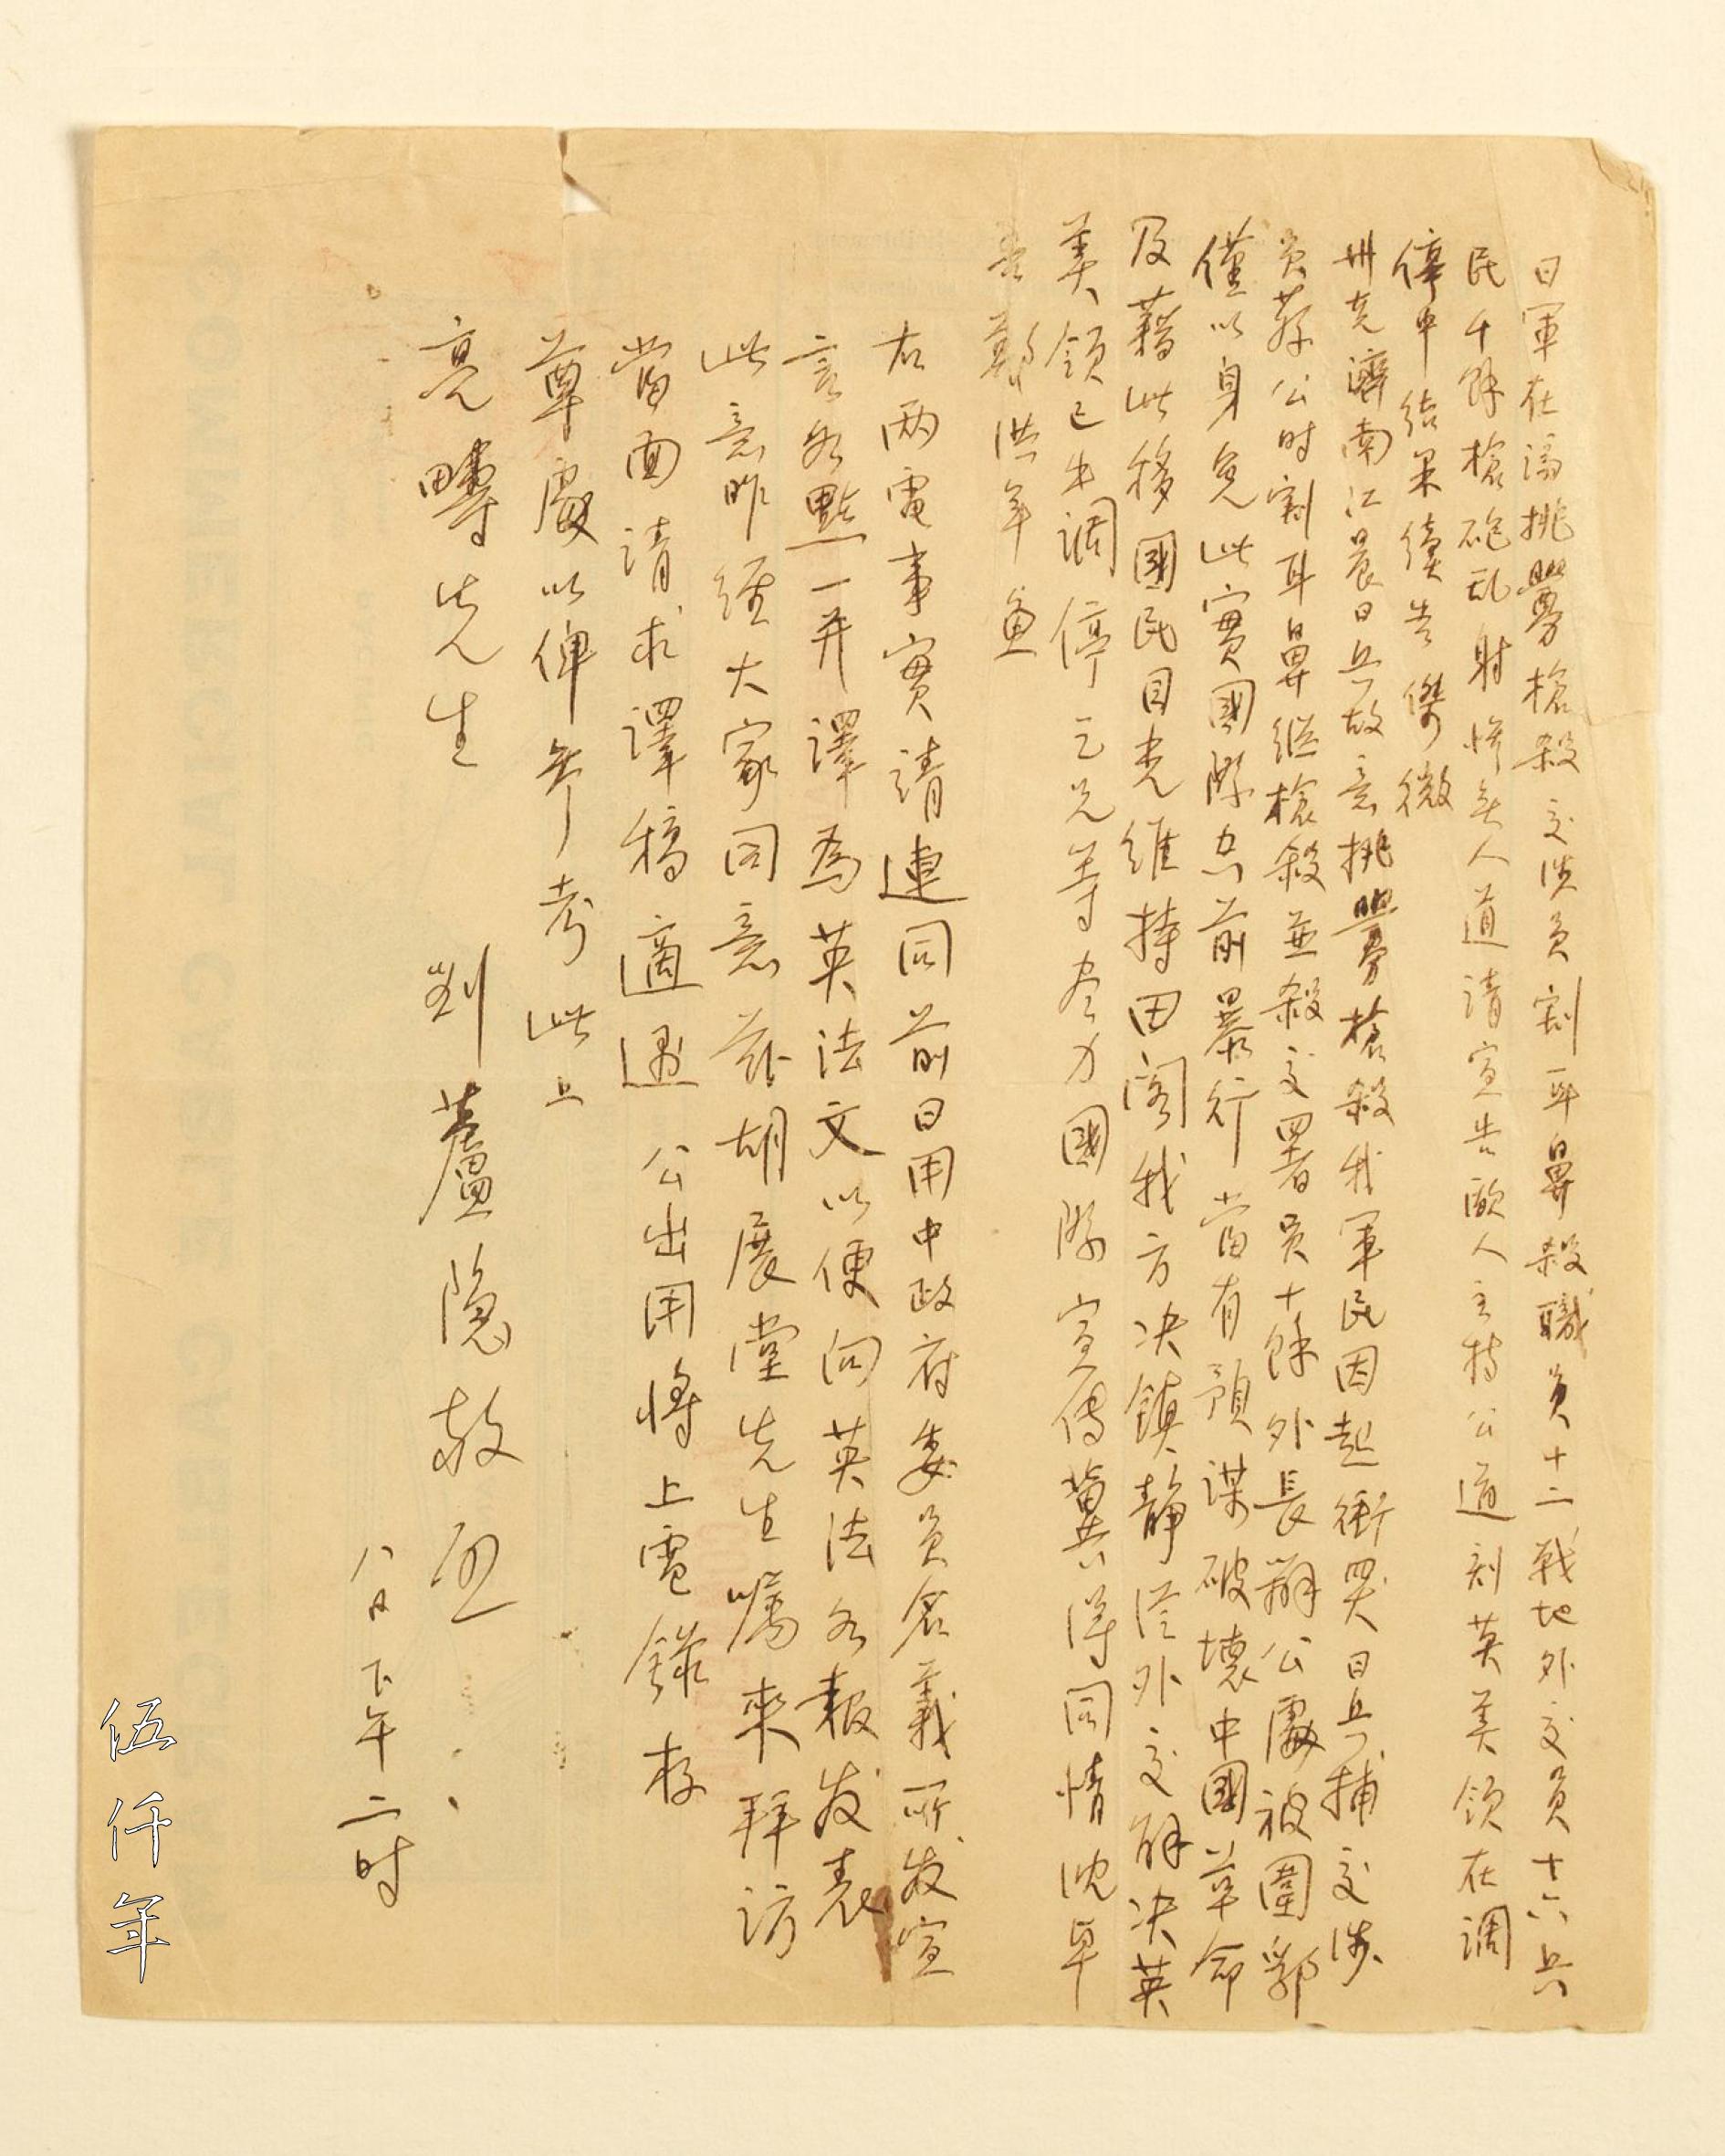 日軍在濟挑釁槍殺交涉員割耳鼻殺職員十二戰地外交員十六兵
民千餘槍砲乱射慘無人道請宣告歐人主持公道刻英美領在調
停中結果續告傑微
卅克濟南江晨日兵故意挑釁槍殺我軍民因起衝突日兵捕交涉
員蔡公时割耳鼻繼槍殺並殺交署員十餘外長辦公處被圍郭
僅以身免此實國際空前暴行當有預謀破壞中國革命
及藉此移國民目光維持田閣我方决鎮静從外交解决英
美領已出調停乞兄等尽力國際宣傳冀得同情沈卓
吾鄭洪年
右两電事實請連同前日用中政府委員名義所发宣
言各點一并譯為英法文以便向英法各報发表
此意昨經大家同意兹胡展堂先生囑來拜訪
當面請求譯稿適遇 公出用將上電錄存
尊處以俾參考此上
亮疇先生 劉蘆隐敬啟
八日下午二时
伍仟年